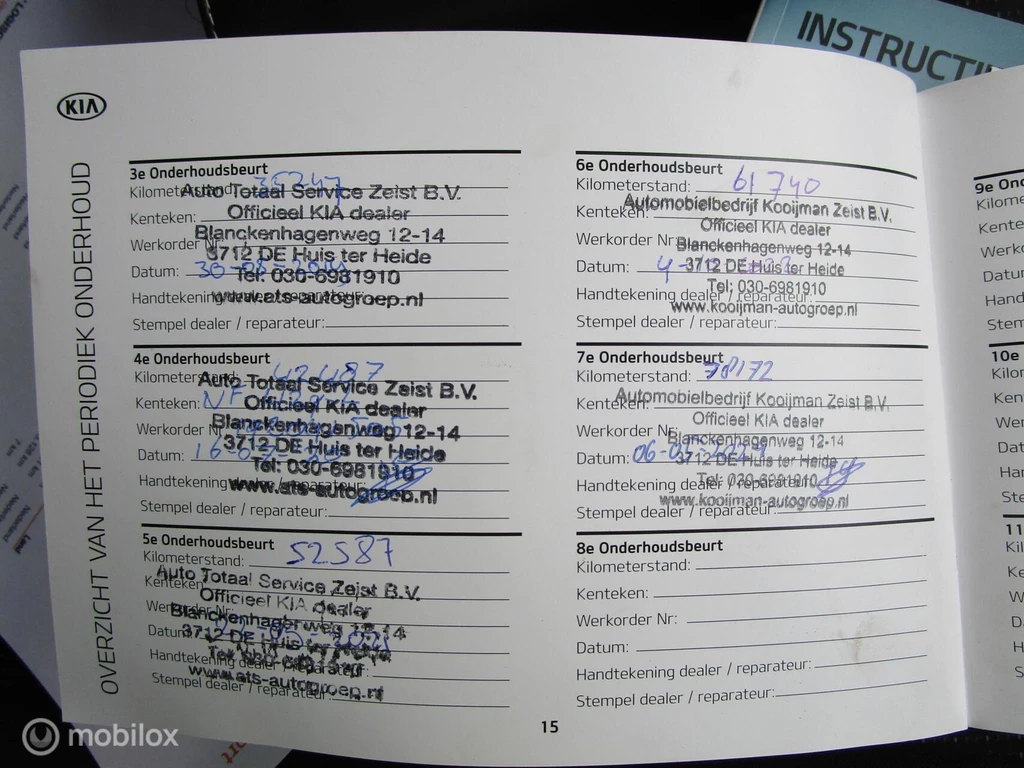 INSTRUCTI
KIA
OVERZICHT VAN HET PERIODIEK ONDERHOUD
3e Onderhoudsbeurt
Kilometerstand: 35247
Auto Totaal Service Zeist B.V.
Kenteken:
Officieel KIA dealer
Werkorder Nr:
Blanckenhagenweg 12-14
3712 DE Huis ter Heide
Datum: 30-08-2019
Tel: 030-6981910
Handtekening dealer / reparateur:
www.ats-autogroep.nl
Stempel dealer / reparateur:
4e Onderhoudsbeurt
Kilometerstand: 42487
Auto Totaal Service Zeist B.V.
Kenteken:
Officieel KIA dealer
Werkorder Nr:
Blanckenhagenweg 12-14
3712 DE Huis ter Heide
Datum: 16-07-
Tel: 030-6981910
Handtekening dealer / reparateur:
www.ats-autogroep.nl
Stempel dealer / reparateur:
5e Onderhoudsbeurt
Kilometerstand: 52587
Auto Totaal Service Zeist B.V.
Kenteken:
Officieel KIA dealer
Werkorder Nr:
Blanckenhagenweg 12-14
Datum: 2021
3712 DE Huis ter Heide
Handtekening dealer / reparateur:
www.ats-autogroep.nl
Stempel dealer / reparateur:
6e Onderhoudsbeurt
Kilometerstand: 61740
Automobielbedrijf Kooijman Zeist B.V.
Kenteken:
Officieel KIA dealer
Werkorder Nr:
Blanckenhagenweg 12-14
Datum: 4-
3712 DE Huis ter Heide
Tel: 030-6981910
Handtekening dealer / reparateur:
www.kooijman-autogroep.nl
Stempel dealer / reparateur:
7e Onderhoudsbeurt
Kilometerstand: 78172
Automobielbedrijf Kooijman Zeist B.V.
Kenteken:
Officieel KIA dealer
Werkorder Nr:
Blanckenhagenweg 12-14
Datum: 06-0
3712 DE Huis ter Heide
Tel: 030-6981910
Handtekening dealer / reparateur:
www.kooijman-autogroep.nl
Stempel dealer / reparateur:
8e Onderhoudsbeurt
Kilometerstand:
Kenteken:
Werkorder Nr:
Datum:
Handtekening dealer / reparateur:
Stempel dealer / reparateur:
15
9e On
Kilome
Kente
Werkc
Datu
Hand
Stem
10e
Kilor
Ken
We
Dat
Ha
St
11
Kil
Ke
W
D
H
S
mobilox